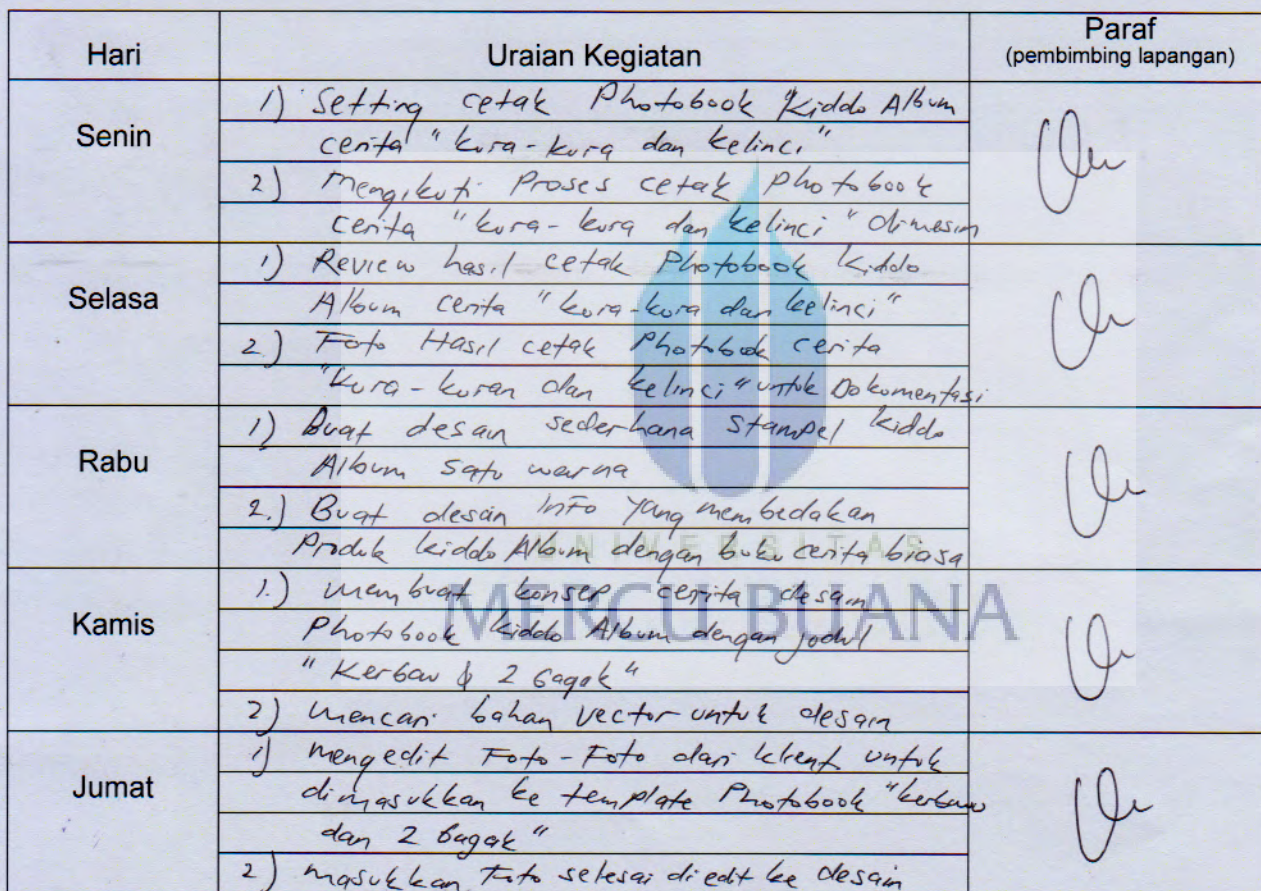 Hari Uraian Kegiatan Paraf
(pembimbing lapangan)
Senin
1) Setting cetak Photobook "Kiddo Album
cerita "kura-kura dan kelinci"
2) Mengikuti Proses cetak Photobook
cerita "kura-kura dan kelinci" dimesin
Selasa
1) Review hasil cetak Photobook kiddo
Album cerita "kura-kura dan kelinci"
2.) Foto Hasil cetak Photobook cerita
"Kura-kuran dan kelinci" untuk Dokumentasi
Rabu
1) Buat desain sederhana stampel kiddo
Album satu warna
2.) Buat desain info yang membedakan
Produk kiddo Album dengan buku cerita biasa
UNIVERSITAS
MERCU BUANA
Kamis
1.) membuat konsep cerita desain
Photobook kiddo Album dengan judul
"Kerbau & 2 Gagak"
2) mencari bahan vector untuk desain
Jumat
1) mengedit Foto-Foto dari klient untuk
dimasukkan ke template Photobook "kerbau
dan 2 Gagak"
2) masukkan Foto selesai diedit ke desain